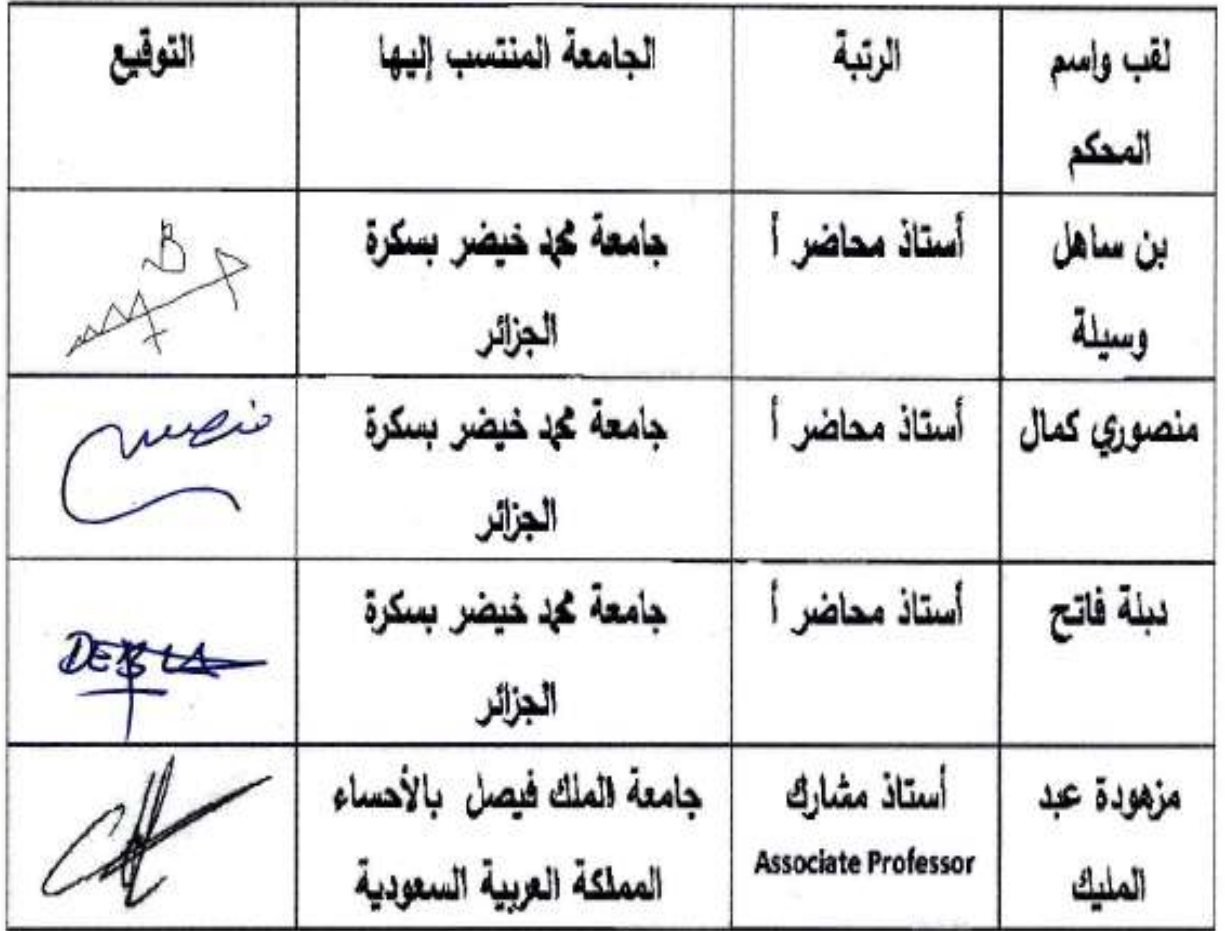 لقب واسم المحكم الرتبة الجامعة المنتسب إليها التوقيع
بن ساهل وسيلة أستاذ محاضر أ جامعة محمد خيضر بسكرة الجزائر B
منصوري كمال أستاذ محاضر أ جامعة محمد خيضر بسكرة الجزائر
دبلة فاتح أستاذ محاضر أ جامعة محمد خيضر بسكرة الجزائر DEBLA
مزهودة عبد المليك أستاذ مشارك Associate Professor جامعة الملك فيصل بالأحساء المملكة العربية السعودية